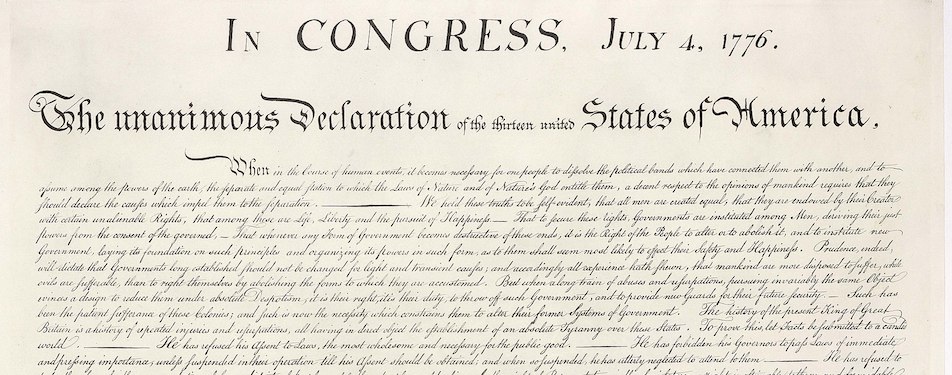 IN CONGRESS, JULY 4, 1776.
The unanimous Declaration of the thirteen united States of America,
When in the Course of human events, it becomes necessary for one people to dissolve the political bands which have connected them with another, and to
assume among the powers of the earth, the separate and equal station to which the Laws of Nature and of Nature's God entitle them, a decent respect to the opinions of mankind requires that they
should declare the causes which impel them to the separation. ——— We hold these truths to be self-evident, that all men are created equal, that they are endowed by their Creator
with certain unalienable Rights, that among these are Life, Liberty and the pursuit of Happiness. — That to secure these rights, Governments are instituted among Men, deriving their just
powers from the consent of the governed, — That whenever any Form of Government becomes destructive of these ends, it is the Right of the People to alter or to abolish it, and to institute new
Government, laying its foundation on such principles and organizing its powers in such form, as to them shall seem most likely to effect their Safety and Happiness. Prudence, indeed,
will dictate that Governments long established should not be changed for light and transient causes; and accordingly all experience hath shewn, that mankind are more disposed to suffer, while
evils are sufferable, than to right themselves by abolishing the forms to which they are accustomed. But when a long train of abuses and usurpations, pursuing invariably the same Object
evinces a design to reduce them under absolute Despotism, it is their right, it is their duty, to throw off such Government, and to provide new Guards for their future security. — Such has
been the patient sufferance of these Colonies; and such is now the necessity which constrains them to alter their former Systems of Government. The history of the present King of Great
Britain is a history of repeated injuries and usurpations, all having in direct object the establishment of an absolute Tyranny over these States. To prove this, let Facts be submitted to a candid
world. ——— He has refused his Assent to Laws, the most wholesome and necessary for the public good. ——— He has forbidden his Governors to pass Laws of immediate
and pressing importance, unless suspended in their operation till his Assent should be obtained; and when so suspended, he has utterly neglected to attend to them. ——— He has refused to